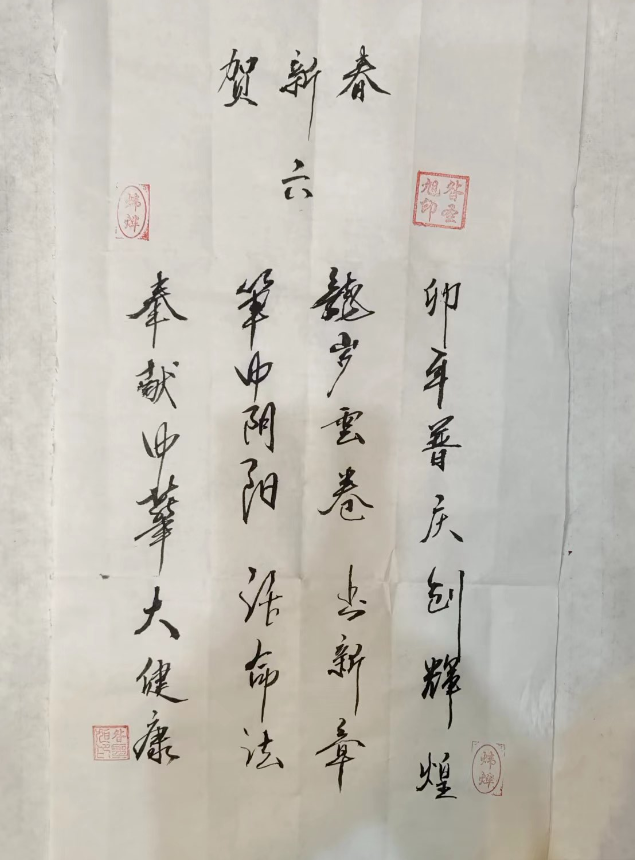 贺新春
六
卯年普庆创辉煌
龙岁雲卷书新章
笔中阴阳话命法
奉献中華大健康